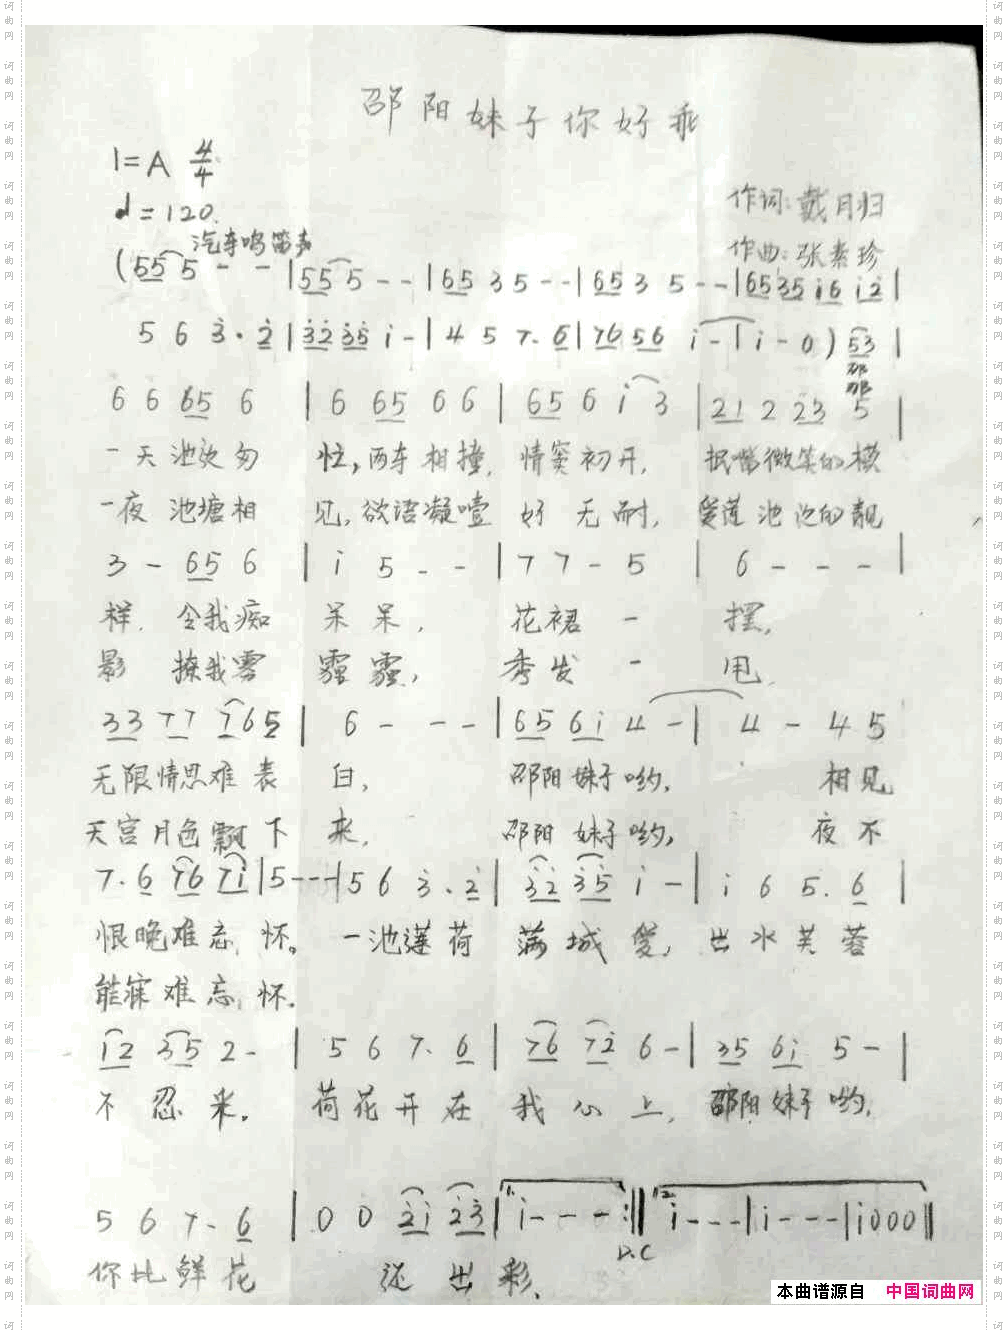 邵阳妹子你好乖
1=A 4/4
♩=120.
作词:戴月归
汽车鸣笛声
作曲:张素珍
(55 5 - - | 55 5 - - | 65 3 5 - - | 65 3 5 - - | 65 35 i6 i2 |
5 6 3. 2 | 32 35 i - | 4 5 7. 6 | 76 56 i - | i - 0 ) 53 |
那
那
6 6 65 6 | 6 65 6 6 | 65 6 i 3 | 21 2 23 5 |
一天池边匆 忙,两车相撞,情窦初开,抿嘴微笑的模
一夜池塘相 见,欲语凝噎 好无耐,爱莲池边的靓
3 - 65 6 | i 5 - - | 7 7 - 5 | 6 - - - |
样,令我痴 呆呆, 花裙 一 摆,
影 撩我雾 霾霾, 秀发 一 甩,
33 77 765 | 6 - - - | 65 6i 4 - | 4 - 4 5
无限情思难表 白, 邵阳妹子哟, 相见
天宫月色飘下 来, 邵阳妹子哟, 夜不
7. 6 76 7i | 5 - - - | 5 6 3. 2 | 32 35 i - | i 6 5. 6 |
恨晚难忘怀。 一池莲荷 满城爱,出水芙蓉
能寐难忘怀.
i2 35 2 - | 5 6 7. 6 | 76 72 6 - | 35 6i 5 - |
不忍采. 荷花开在 我心上, 邵阳妹子哟,
5 6 7. 6 | 0 0 2i 23 | 1. i - - - :‖ 2. i - - - | i - - - | i 0 0 0 ‖
D.C
你比鲜花 还出彩.
本曲谱源自 中国词曲网